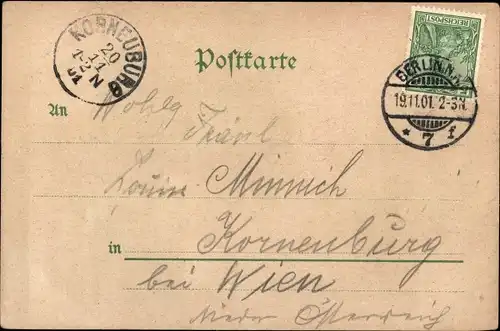 KORNEUBURG
20
11
1-2 N
01
Postkarte
REICHSPOST
BERLIN N.W.
19.11.01. 2-3N.
* 7 f
An
Wohlg
Fräul
Minnich
in Korneuburg
bei Wien
Nieder Österreich